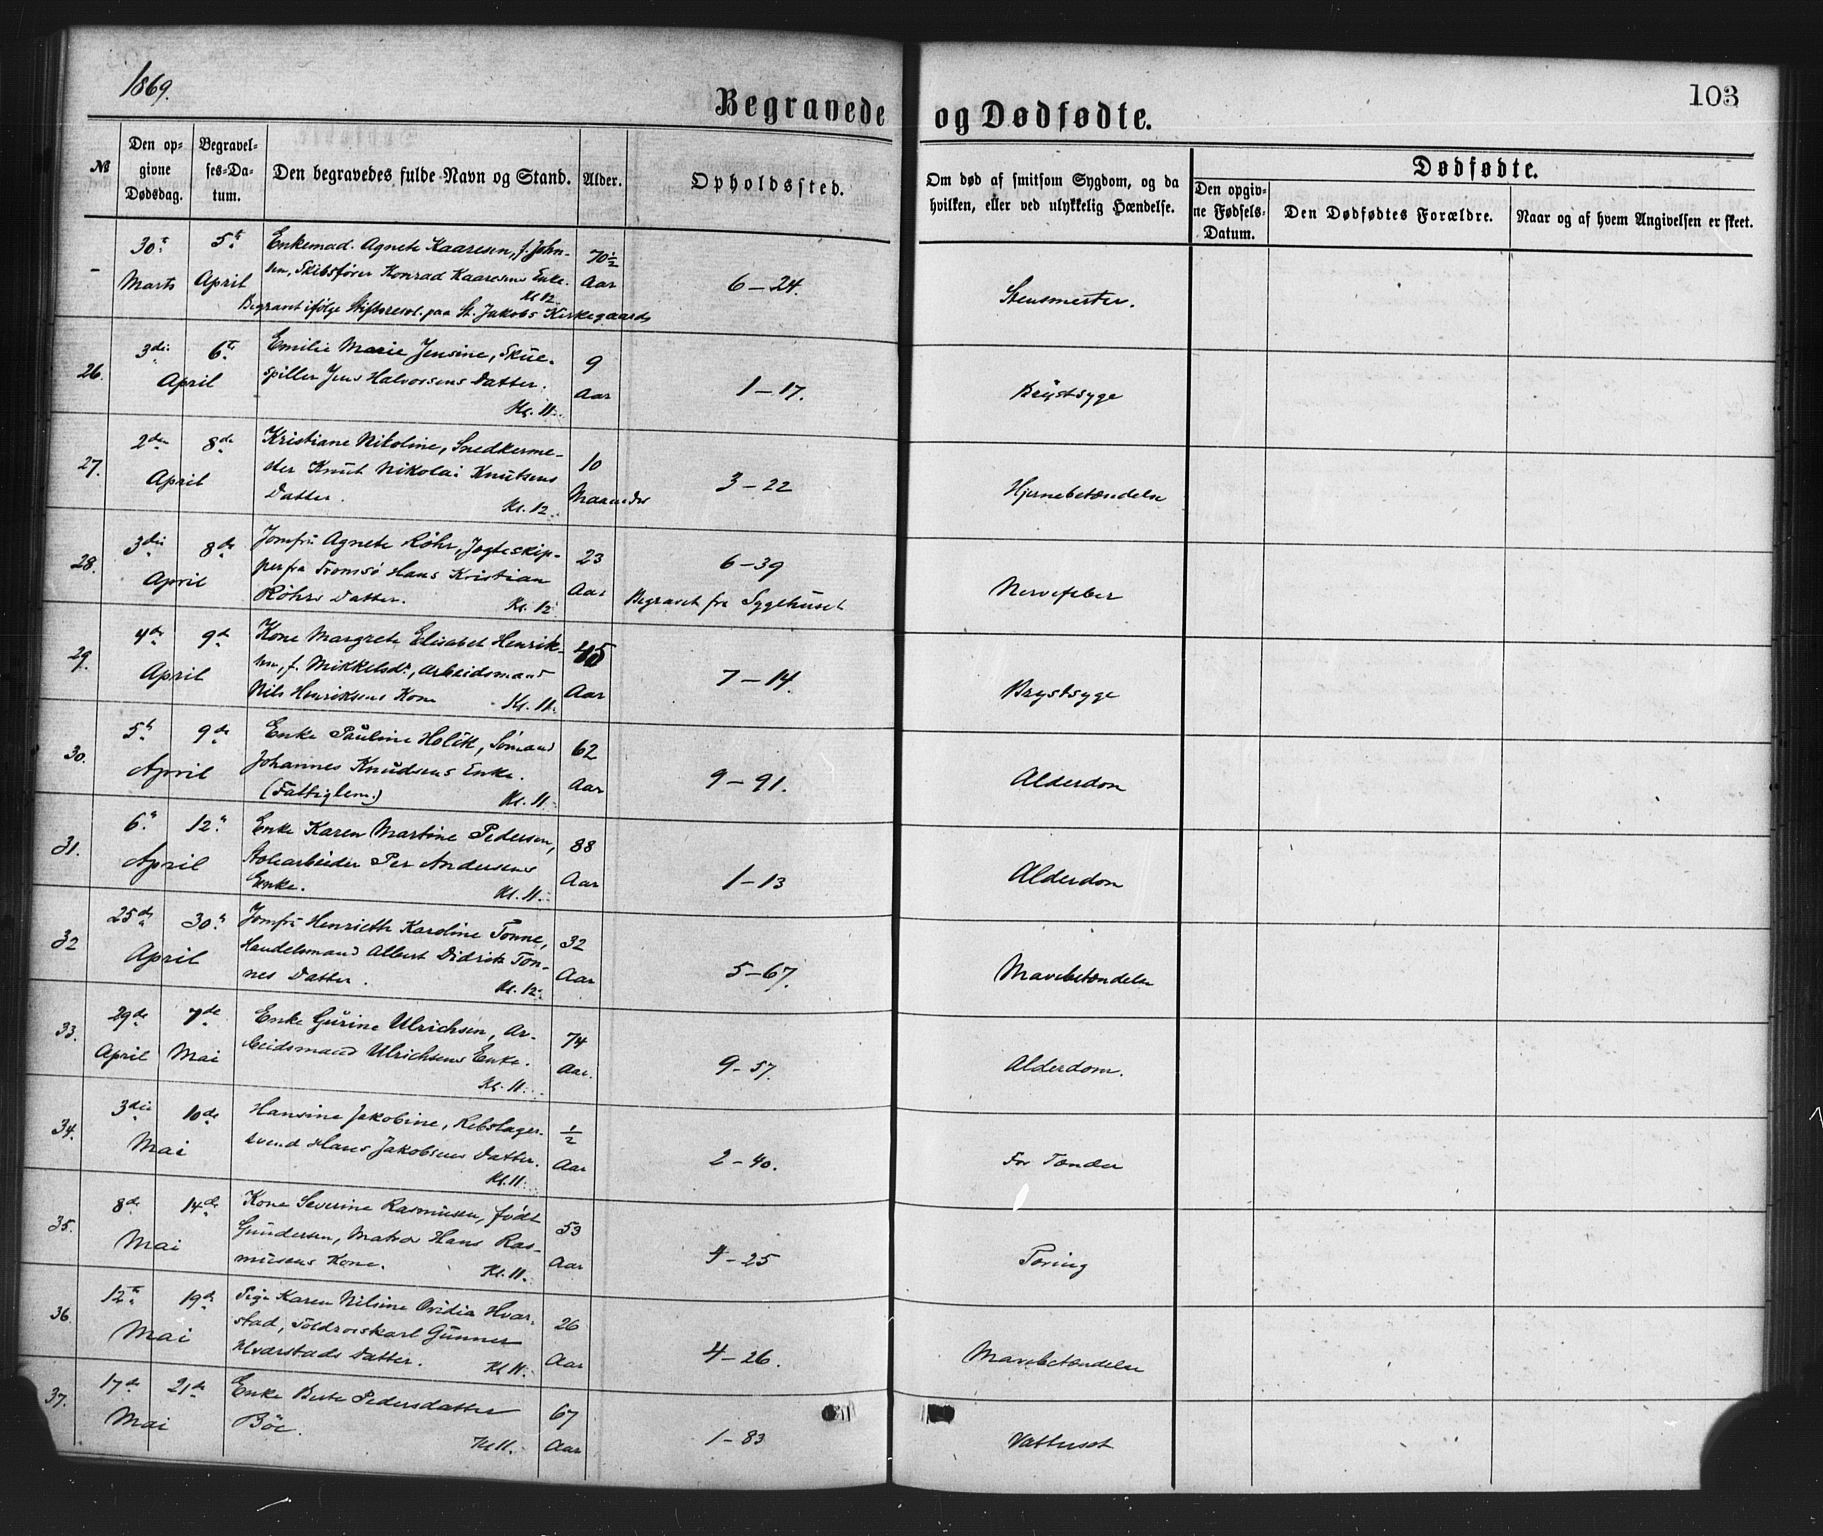 1869.
103
Begravede og Dødfødte.
№
Den op-
givne
Dødsdag.
Begravel-
ses-Da-
tum.
Den begravedes fulde Navn og Stand.
Alder.
Opholdssted.
Om død af smitsom Sygdom, og da
hvilken, eller ved ulykkelig Hændelse.
Dødfødte.
Den opgiv-
ne Fødsels-
Datum.
Den Dødfødtes Forældre.
Naar og af hvem Angivelsen er skeet.
- 30te Marts 5te April
Enkemad. Agnete Kaaresen, f. John-
sen, Skibsfører Konrad Kaaresens Enke.
Kl 12.
Begravet ifølge Stiftsresol. paa St. Jakobs Kirkegaard
70½ Aar 6 – 24.
26. 3die 6te April
Emilie Marie Jensine, Skue-
spiller Jens Halvorsens Datter.
Kl. 11.
9 Aar 1 – 17. Brÿstsyge
27. 2den 8de April
Kristiane Nikoline, Snedkerme-
ster Knut Nikolai Knutsens
Datter. Kl. 12.
10 Maaneder 3 – 22 Hjernebetændelse
28. 3die 8de April
Jomfru Agnete Röhr, Jagteskip-
per fra Tromsö Hans Kristian
Röhrs Datter. Kl. 12.
23 Aar 6 – 39
Begravet fra Sygehuset
Nervefeber
29. 4de 9de April
Kone Margrete Elisabet Henrik-
sen, f. Mikkelsdr, Arbeidsmand
Nils Henriksens Kone Kl. 11.
45 Aar 7 – 14. Brystsyge
30. 5te 9de April
Enke Pauline Holck, Sömand
Johannes Knudsens Enke.
(Fattiglem.) Kl. 11.
62 Aar 9 – 91. Alderdom
31. 6te 12te April
Enke Karen Martine Pedersen,
Per Andersens
Enke. Kl. 11.
88 Aar 1 – 13 Alderdom
32 25de 30te April
Jomfru Henriette Karoline Tonne,
Handelsmand Albert Didrik Ton-
nes Datter. Kl. 12.
32 Aar 5 – 67. Mavebetændelse
33. 29de April 7de Mai
Enke Gurine Ulrichsen, Ar-
beidsmand Ulrichsens Enke.
Kl. 11.
74 Aar. 9 – 57. Alderdom.
34. 3die 10de Mai
Hansine Jakobine, Rebslager-
svend Hans Jakobsens Datter.
Kl. 11.
½ Aar 2 – 40. For Tænder
35. 8de 14de Mai
Kone Severine Rasmusen, födt
Gundersen, Matros Hans Ras-
musens Kone. Kl. 11.
53 Aar 4 – 25 Tæring
36. 12te 19de Mai
Pige Karen Nilsine Ovidia Hvar-
stad, Toldroerskarl Gunner
Hvarstads Datter. Kl 11.
26 Aar 4 – 26. Mavebetændelse
37. 17de 21de Mai
Enke Berte Pedersdatter
Böe. Kl 11.
67 Aar 1 – 83 Vattersot